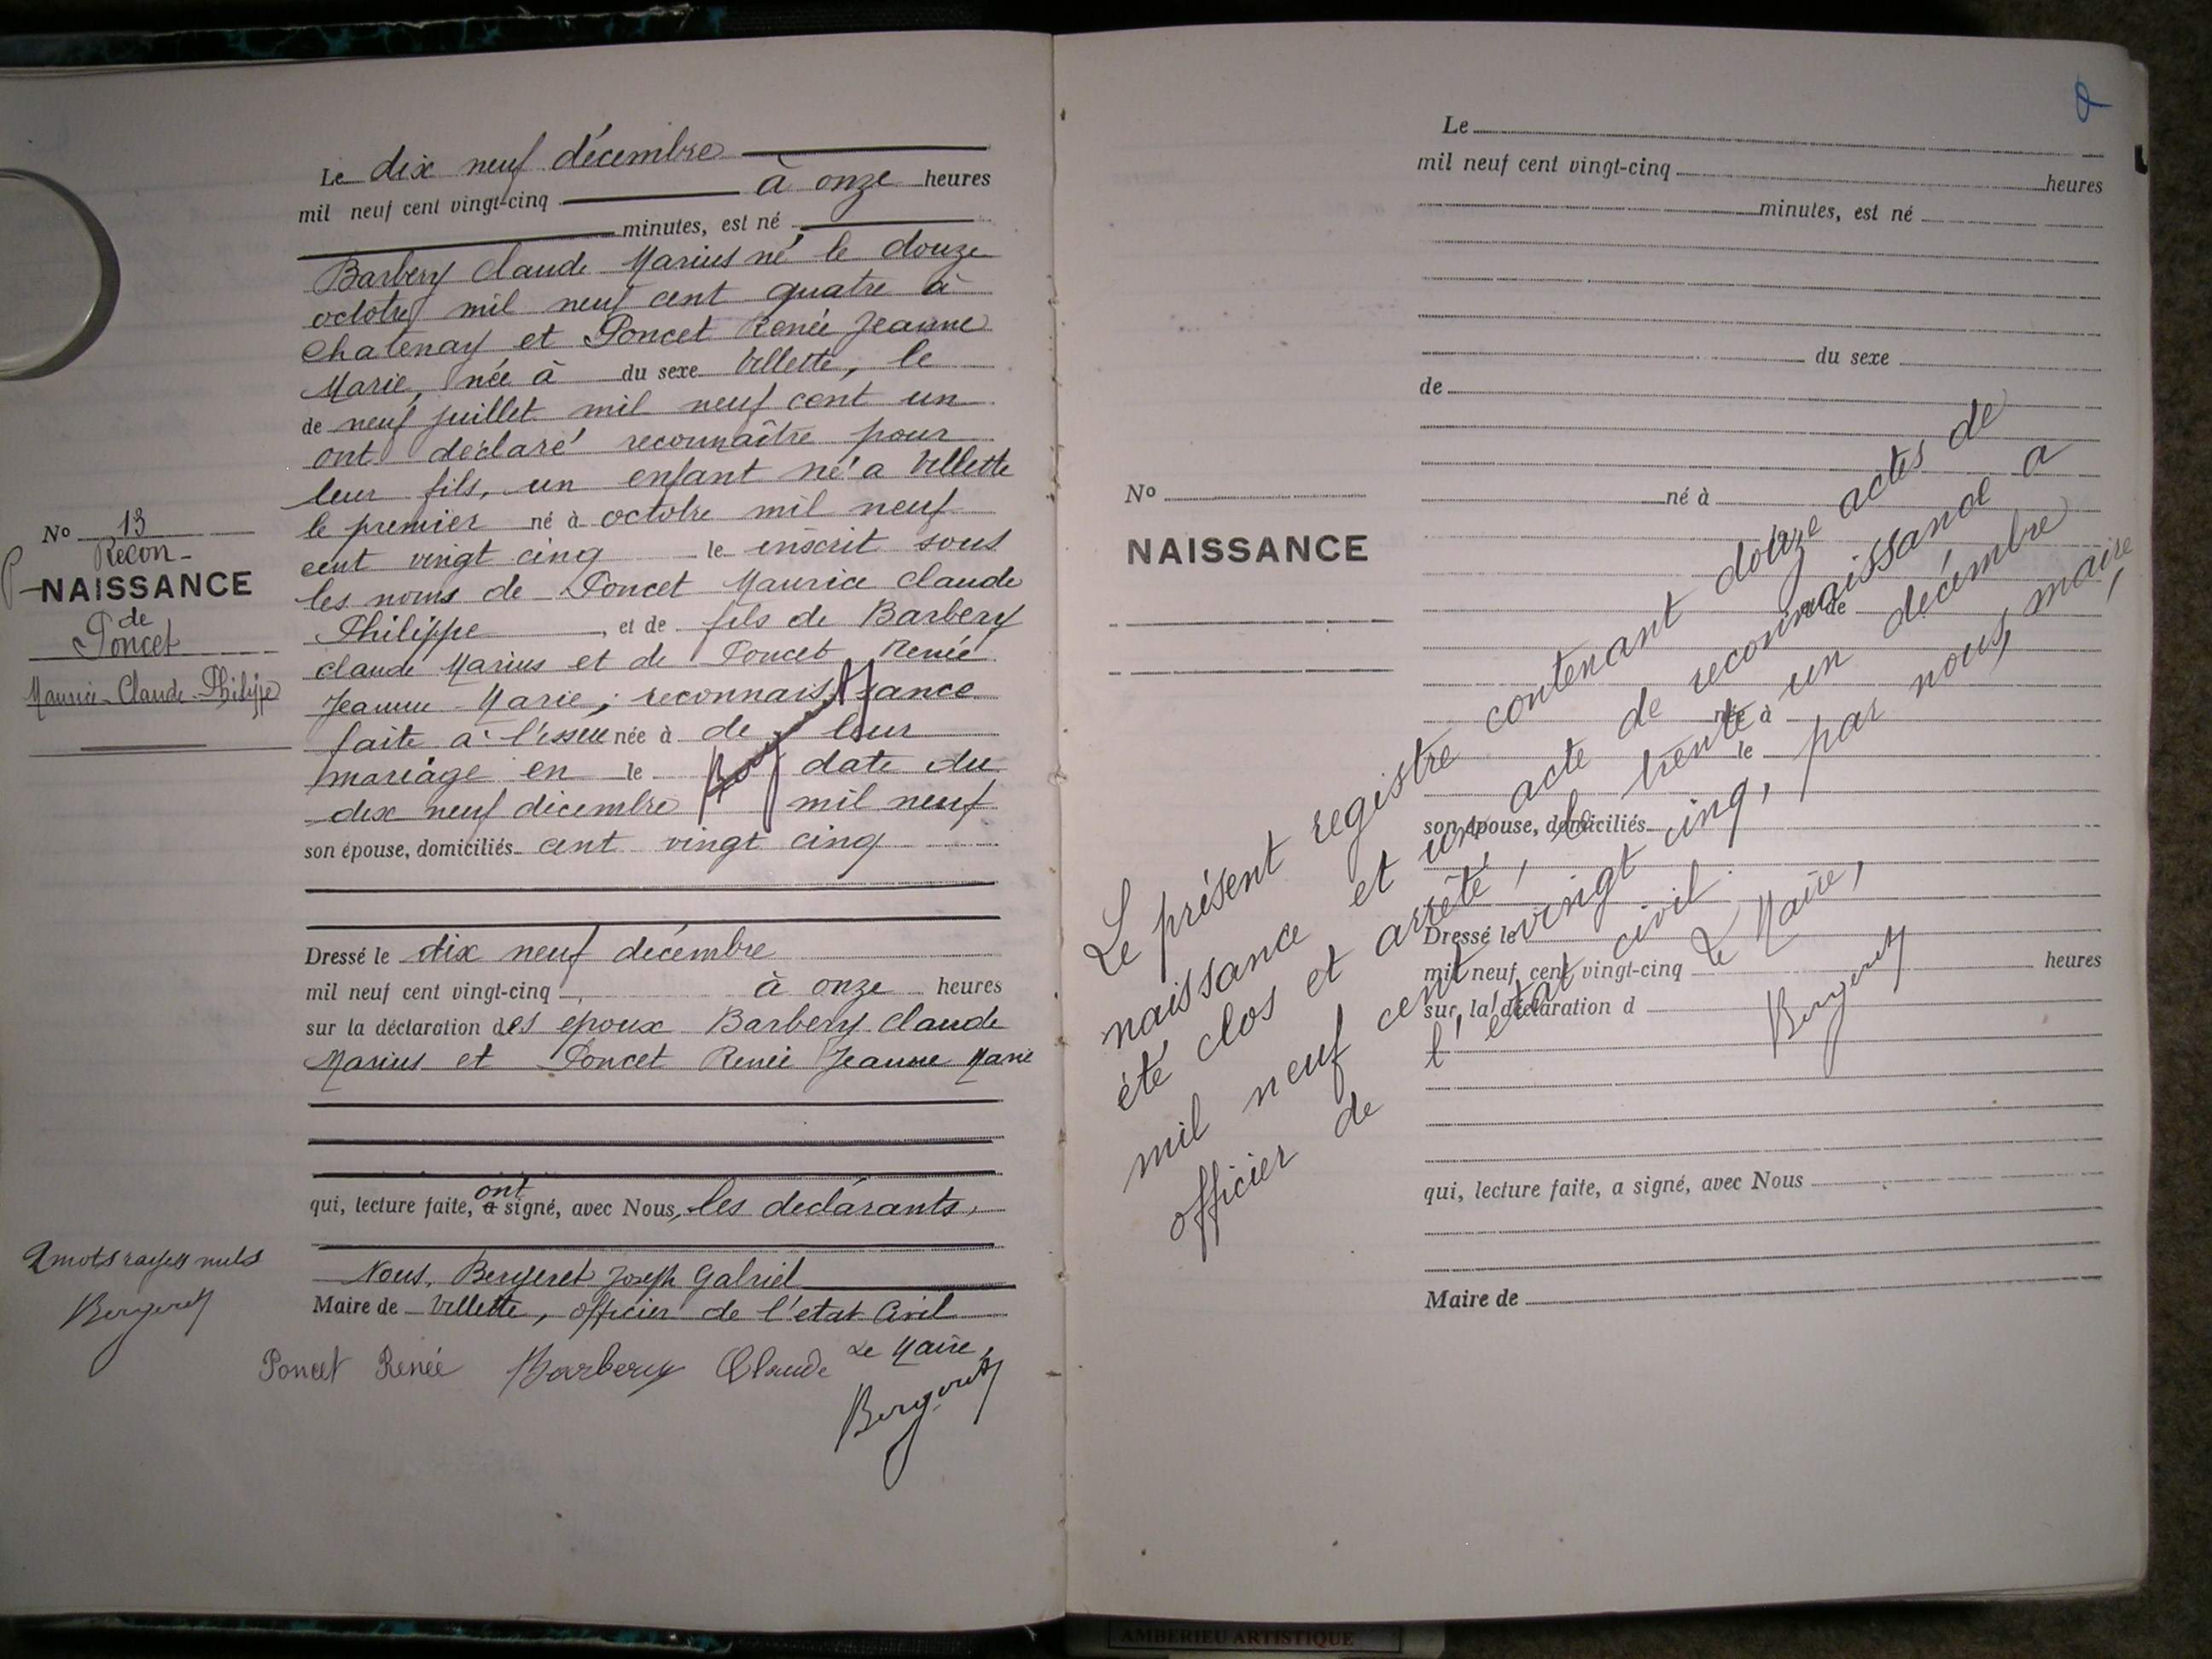 Le dix neuf décembre
mil neuf cent vingt-cinq à onze heures
minutes, est né
Barbery Claude Marius né le douze
octobre mil neuf cent quatre à
Chatenay et Poncet Renée Jeanne
Marie, née à du sexe Villette, le
de neuf juillet mil neuf cent un
ont déclaré reconnaître pour
leur fils, un enfant né a Villette
le premier né à octobre mil neuf
cent vingt cinq le inscrit sous
les noms de Poncet Maurice Claude
Philippe, et de fils de Barbery
Claude Marius et de Poncet Renée
Jeanne Marie; reconnaissance
faite à l'issue née à de leur
mariage en le date du
dix neuf décembre mil neuf
son épouse, domiciliés cent vingt cinq
No 13
Recon-
NAISSANCE
de
Poncet
Maurice-Claude-Philippe
Dressé le dix neuf décembre
mil neuf cent vingt-cinq à onze heures
sur la déclaration des epoux Barbery Claude
Marius et Poncet Renée Jeanne Marie
ont
qui, lecture faite, a signé, avec Nous, les declarants,
Nous, Bergeret Joseph Gabriel
Maire de Villette, officier de l'etat Civil
2 mots rayés nuls
Bergeret
Poncet Renée Barbery Claude Le Maire,
Bergeret
Le
mil neuf cent vingt-cinq heures
minutes, est né
du sexe
de
né à
No
NAISSANCE
et de
née à
le
son épouse, domiciliés
Dressé le
mil neuf cent vingt-cinq heures
sur la déclaration d
qui, lecture faite, a signé, avec Nous
Maire de
Le présent registre contenant douze actes de
naissance et un acte de reconnaissance a
été clos et arrêté, le trente un décembre
mil neuf cent vingt cinq, par nous, maire,
officier de l'état civil.
Le Maire,
Bergeret
AMBERIEU ARTISTIQUE